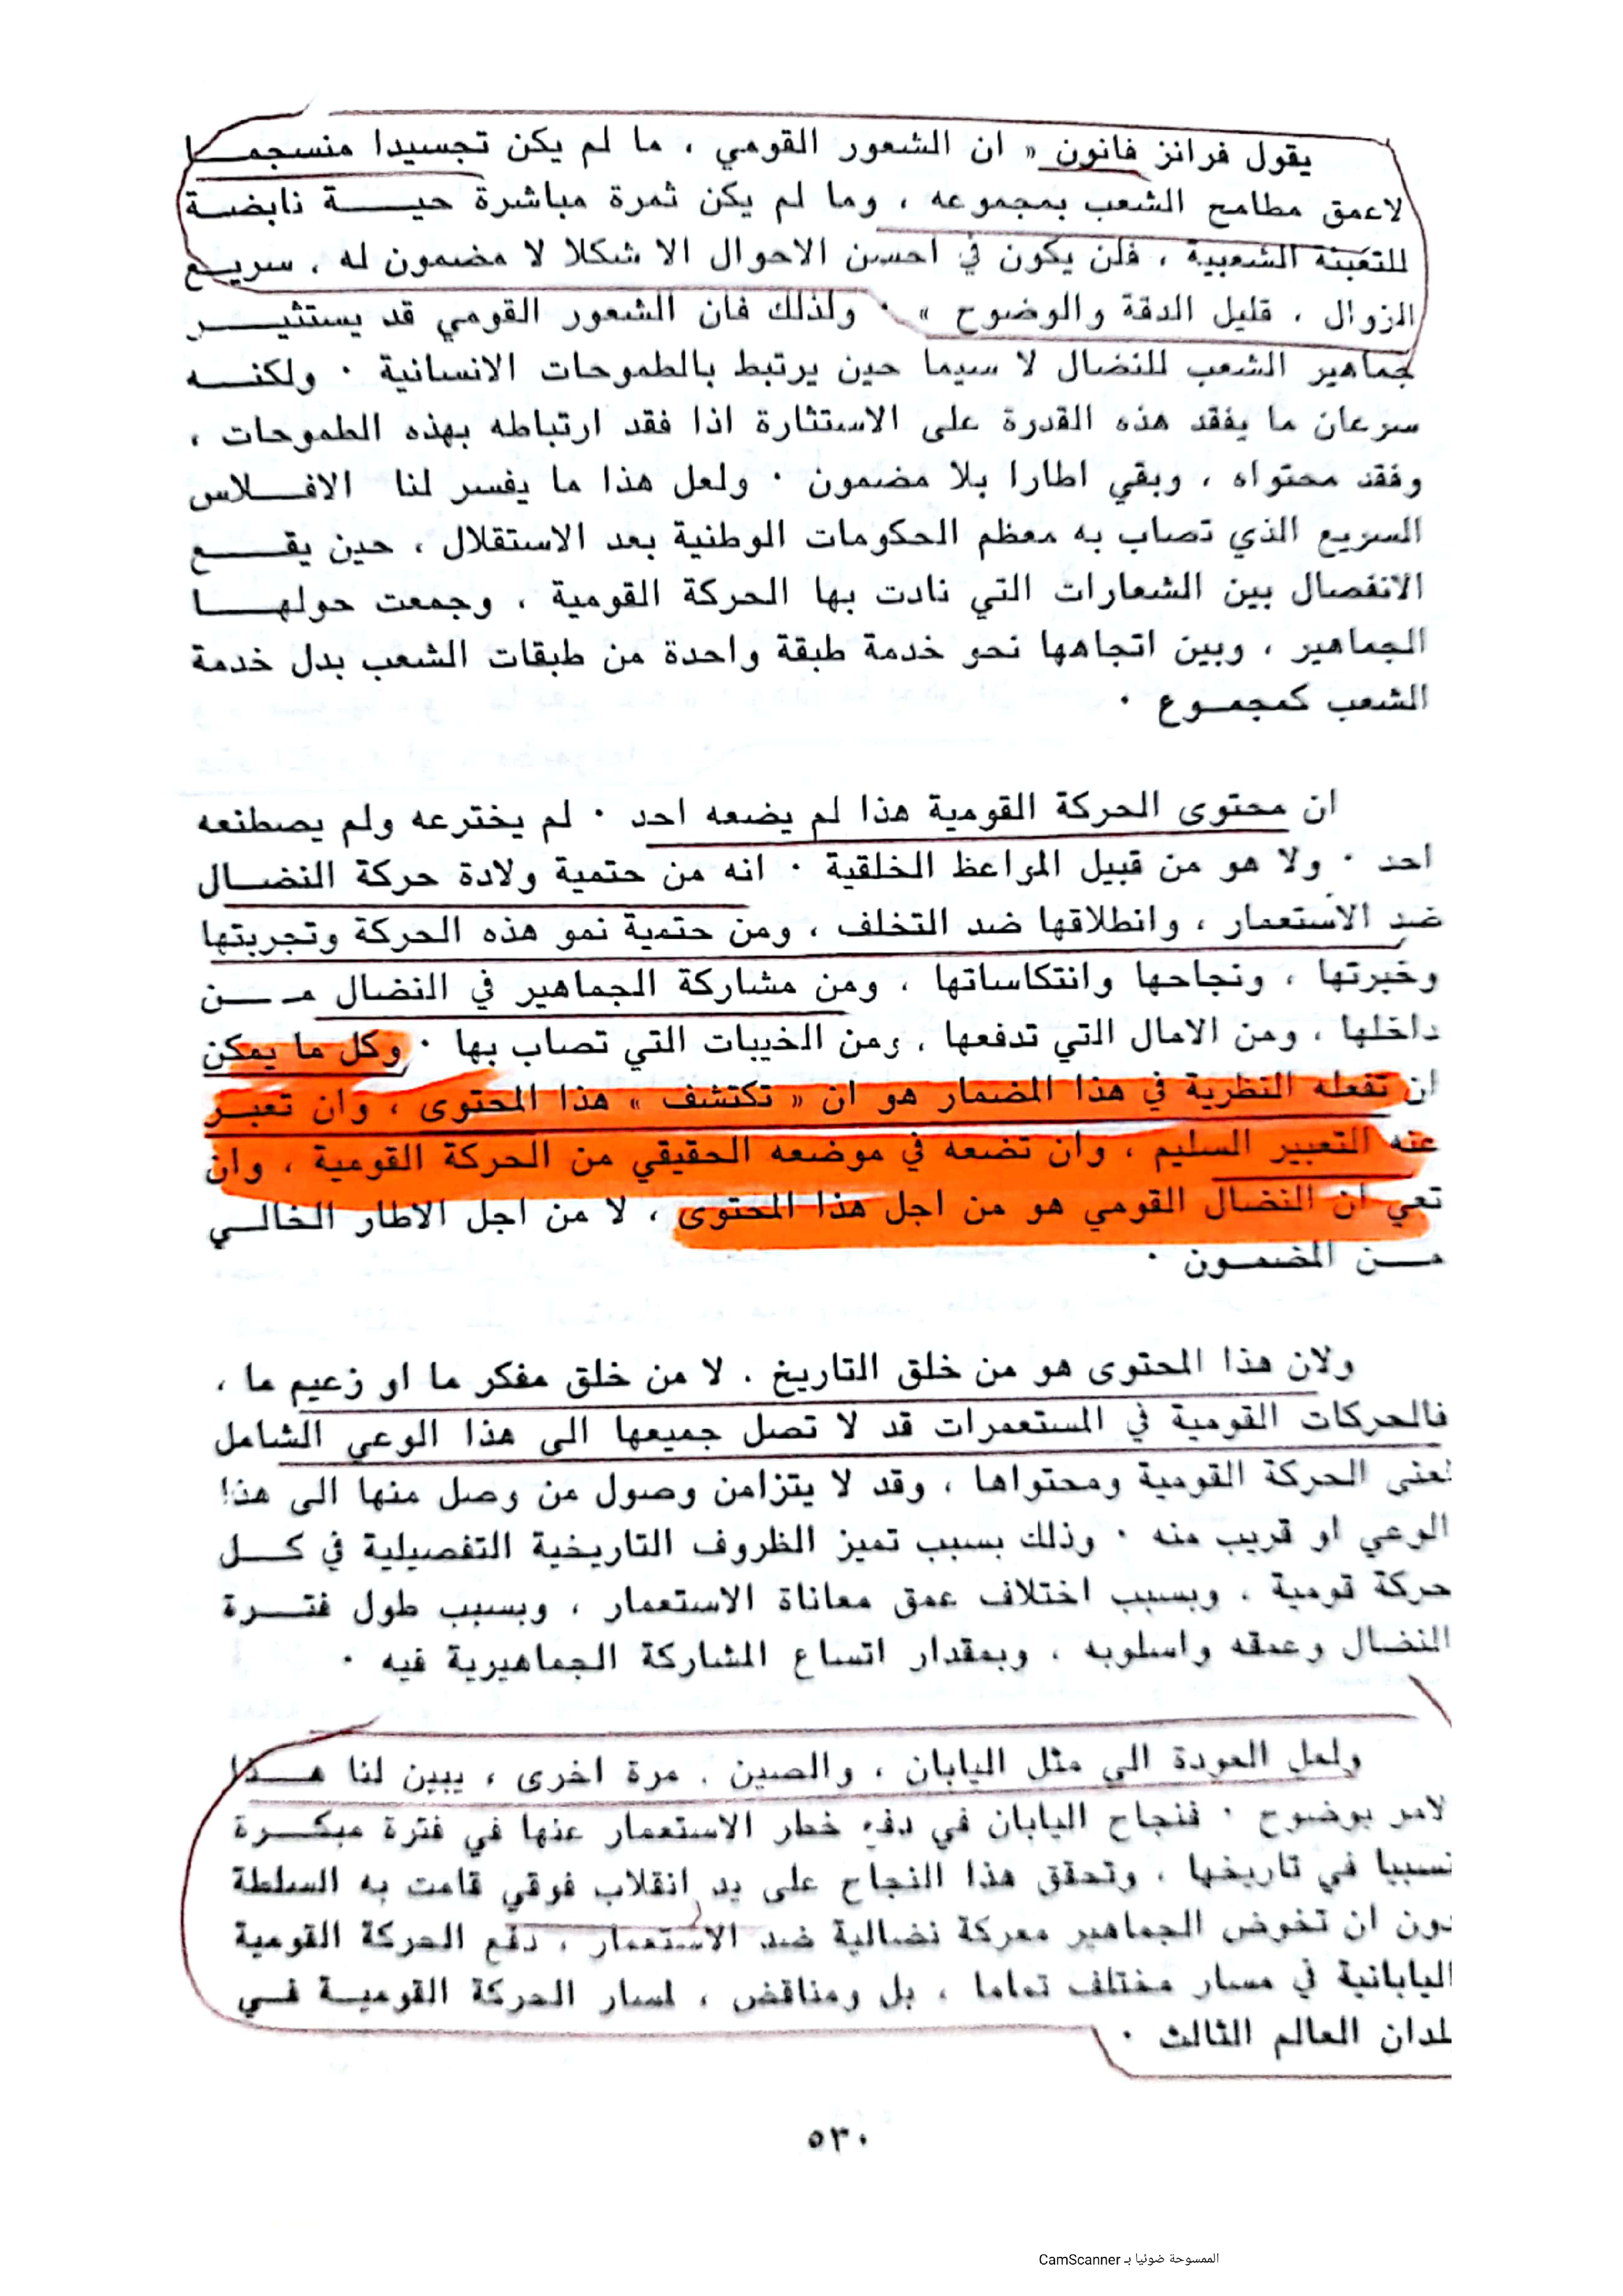 يقول فرانز فانون « ان الشعور القومي ، ما لم يكن تجسيدا منسجمـــا
لاعمق مطامح الشعب بمجموعه ، وما لم يكن ثمرة مباشرة حيـــة نابضـة
للتعبئة الشعبية ، فلن يكون في احسن الاحوال الا شكلا لا مضمون له ، سريــع
الزوال ، قليل الدقة والوضوح » ٠ ولذلك فان الشعور القومي قد يستثيـــر
جماهير الشعب للنضال لا سيما حين يرتبط بالطموحات الانسانية ٠ ولكنــه
سرعان ما يفقد هذه القدرة على الاستثارة اذا فقد ارتباطه بهذه الطموحات ،
وفقد محتواه ، وبقي اطارا بلا مضمون ٠ ولعل هذا ما يفسر لنا الافـــلاس
السريع الذي تصاب به معظم الحكومات الوطنية بعد الاستقلال ، حين يقــــع
الانفصال بين الشعارات التي نادت بها الحركة القومية ، وجمعت حولهـــا
الجماهير ، وبين اتجاهها نحو خدمة طبقة واحدة من طبقات الشعب بدل خدمة
الشعب كمجمــوع ٠
ان محتوى الحركة القومية هذا لم يضعه احد ٠ لم يخترعه ولم يصطنعه
احد ٠ ولا هو من قبيل المراعظ الخلقية ٠ انه من حتمية ولادة حركة النضــال
ضد الاستعمار ، وانطلاقها ضد التخلف ، ومن حتمية نمو هذه الحركة وتجربتها
وخبرتها ، ونجاحها وانتكاساتها ، ومن مشاركة الجماهير في النضال مـــن
داخلها ، ومن الامال التي تدفعها ، ومن الخيبات التي تصاب بها ٠ وكل ما يمكن
ان تفعله النظرية في هذا المضمار هو ان « تكتشف » هذا المحتوى ، وان تعبــر
عنه التعبير السليم ، وان تضعه في موضعه الحقيقي من الحركة القومية ، وان
تعي ان النضال القومي هو من اجل هذا المحتوى ، لا من اجل الاطار الخالــي
مـــن المضمــون ٠
ولان هذا المحتوى هو من خلق التاريخ . لا من خلق مفكر ما او زعيم ما ،
فالحركات القومية في المستعمرات قد لا تصل جميعها الى هذا الوعي الشامل
لمعنى الحركة القومية ومحتواها ، وقد لا يتزامن وصول من وصل منها الى هذا
الوعي او قريب منه ٠ وذلك بسبب تميز الظروف التاريخية التفصيلية في كـــل
حركة قومية ، وبسبب اختلاف عمق معاناة الاستعمار ، وبسبب طول فتـــرة
النضال وعمقه واسلوبه ، وبمقدار اتساع المشاركة الجماهيرية فيه ٠
ولعل العودة الى مثل اليابان ، والصين . مرة اخرى ، يبين لنا هـــذا
لامر بوضوح ٠ فنجاح اليابان في دفع خطر الاستعمار عنها في فترة مبكــرة
نسبيا في تاريخها ، وتحقق هذا النجاح على يد انقلاب فوقي قامت به السلطة
دون ان تخوض الجماهير معركة نضالية ضد الاستعمار ، دفع الحركة القومية
اليابانية في مسار مختلف تماما ، بل ومناقض ، لمسار الحركة القوميــة فــي
لمدان العالم الثالث ٠
٥٣٠
الممسوحة ضوئيا بـ CamScanner